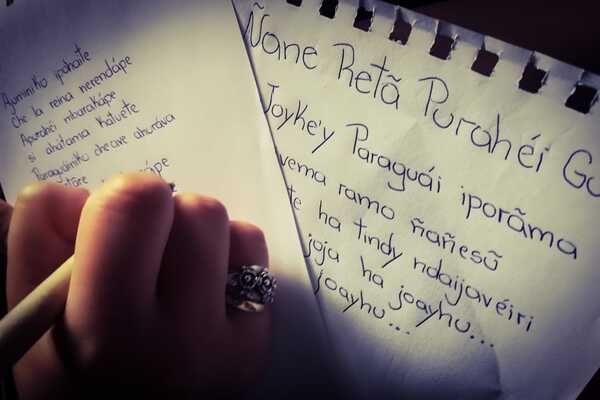 Ajuminko ipohaite
Che la reina nerendápe
Apurahéi mbarakápe
si ahátama katuete
Paraguáimiko cheave ahorava
Ñane Retã Purahéi Gu
Joyke'y Paraguái iporãma
vema ramo ñañesũ
te ha tindy ndaijavéiri
joja ha joayhu...
joayhu...